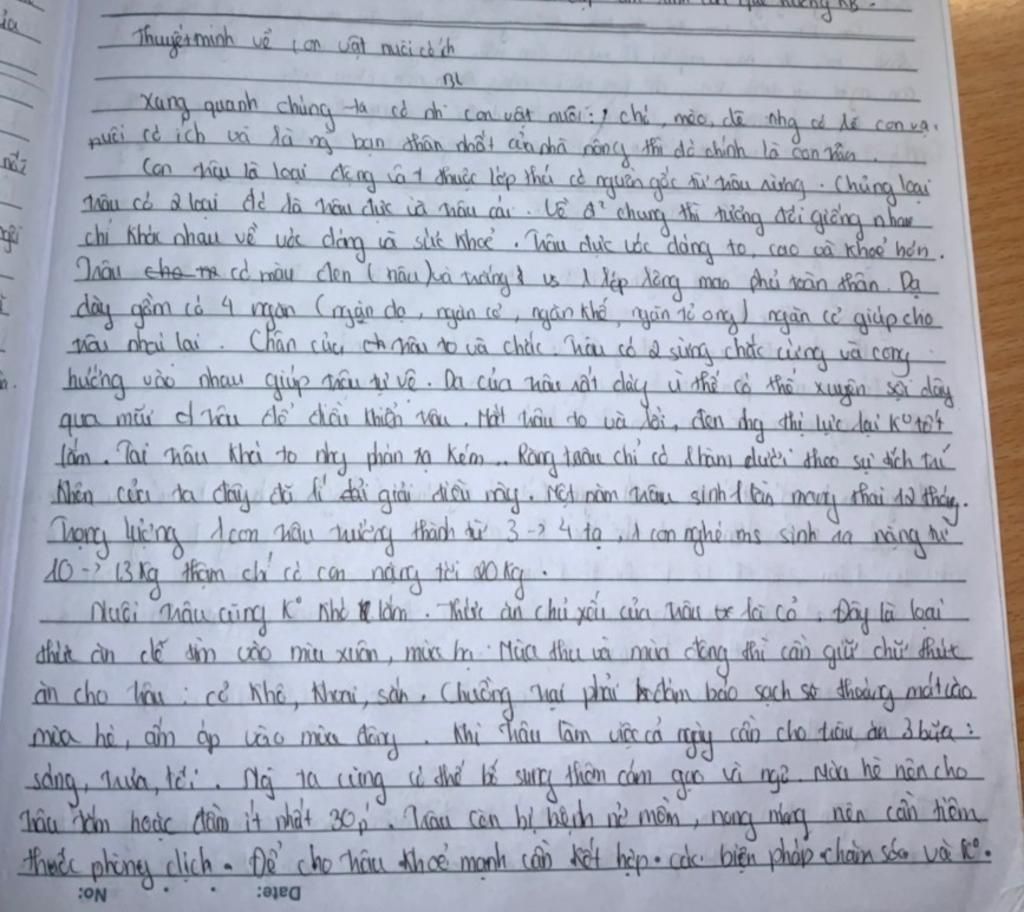 Thuyết minh về con vật nuôi có ích
BL
Xung quanh chúng ta có nh con vật nuôi: chó, mèo, dê nhg có lẽ con vật
nuôi có ích và là ng bạn thân nhất của nhà nông thì đó chính là con trâu.
Con trâu là loại động vật thuộc lớp thú có nguồn gốc từ trâu rừng. Chủng loại
trâu có 2 loại đó là trâu đực và trâu cái. Về đ² chung thì tương đối giống nhau
chỉ khác nhau về vóc dáng và sức khoẻ. Trâu đực vóc dáng to, cao và khoẻ hơn.
Trâu có màu đen (nâu) và trắng vs 1 lớp lông mao phủ toàn thân. Dạ
dày gồm có 4 ngăn (ngăn dạ, ngăn cỏ, ngăn khế, ngăn tổ ong) ngăn cỏ giúp cho
trâu nhai lại. Chân của trâu to và chắc. Trâu có 2 sừng chắc cứng và cong
hướng vào nhau giúp trâu tự vệ. Da của trâu rất dày vì thế có thể xuyên sợi dây
qua mũi trâu để điều khiển trâu. Mắt trâu to và lồi, đen nhg thị lực lại K° tốt
lắm. Tai trâu khá to nhg phản xạ kém.. Răng trâu chỉ có hàm dưới theo sự tích trí
khôn của ta đây đã lí giải điều này. Một năm trâu sinh 1 lần mang thai 12 tháng.
Trọng lượng 1 con trâu trưởng thành từ 3 -> 4 tạ, 1 con nghé ms sinh ra nặng từ
10 -> 13 Kg thậm chí có con nặng tới 20 Kg.
Nuôi trâu cũng K° khó lắm. Thức ăn chủ yếu của trâu là cỏ. Đây là loại
thức ăn dễ tìm vào mùa xuân, mùa hạ. Mùa thu và mùa đông thì cần giữ chữ thức
ăn cho trâu: cỏ khô, khoai, sắn. Chuồng trại phải đảm bảo sạch sẽ thoáng mát vào
mùa hè, ấm áp vào mùa đông. Khi trâu làm việc cả ngày cần cho trâu ăn 3 bữa:
sáng, trưa, tối. Ng ta cũng có thể bổ sung thêm cám gạo và ngô. Mùa hè nên cho
trâu tắm hoặc đầm ít nhất 30p'. Trâu còn bị bệnh nở mồm, nong móng nên cần tiêm
thuốc phòng dịch. Để cho trâu khoẻ mạnh cần kết hợp các biện pháp chăm sóc và K°.
No: Date: